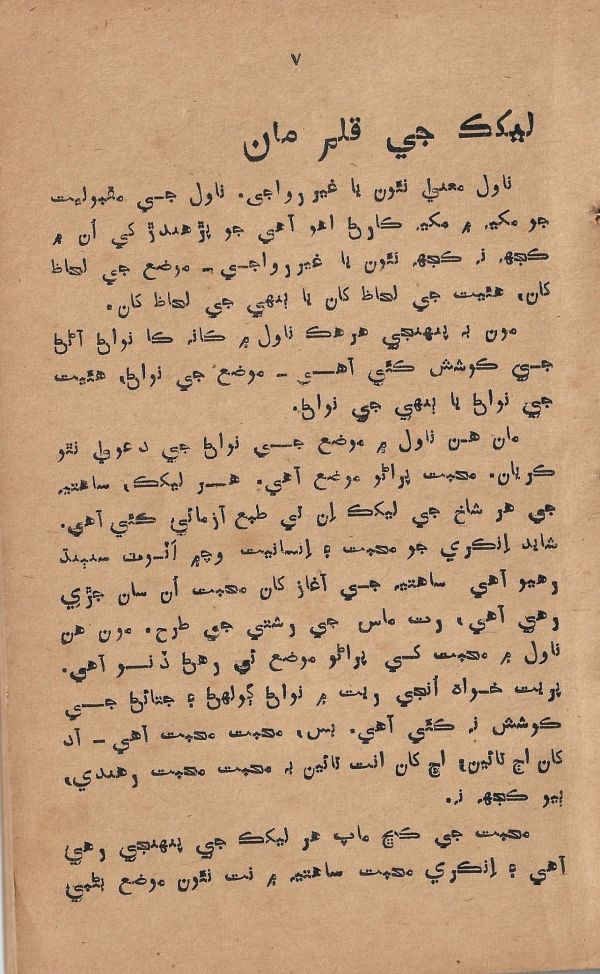 ٧
ليکڪ جي قلم مان
ناول معنيٰ نئون يا غير رواجي. ناول جي مقبوليت
جو مکيه ۾ مکيه ڪارڻ اهو آهي جو پڙهندڙ کي اُن ۾
ڪجهہ نہ ڪجهہ نئون يا غير رواجي ـ موضع جي لحاظ
کان، هئيت جي لحاظ کان يا ٻنهي جي لحاظ کان.
مون بہ پنهنجي هر هڪ ناول ۾ ڪانہ ڪا نواڻ آڻڻ
جي ڪوشش ڪئي آهي ـ موضع جي نواڻ، هئيت
جي نواڻ يا ٻنهي جي نواڻ.
مان هن ناول ۾ موضع جي نواڻ جي دعويٰ نٿو
ڪريان. محبت پراڻو موضع آهي. هر ليکڪ، ساهتيہ
جي هر شاخ جي ليکڪ اِن تي طبع آزمائي ڪئي آهي.
شايد اِنڪري جو محبت ۽ اِنسانيت وچ ۾ اَٽوٽ سنٻنڌ
رهيو آهي ساهتيہ جي آغاز کان محبت اُن سان جڙي
رهي آهي، رت ماس جي رشتي جي طرح. مون هن
ناول ۾ محبت کي پراڻو موضع ئي رهڻ ڏنو آهي.
پريت خواه اُنجي ريت ۾ نواڻ ڳولهڻ ۽ جتائڻ جي
ڪوشش نہ ڪئي آهي. بس، محبت محبت آهي ـ آد
کان اڄ تائين، اڄ کان انت تائين بہ محبت محبت رهندي،
ٻيو ڪجهہ نہ.
محبت جي ڪڇ ماپ هر ليکڪ جي پنهنجي رهي
آهي ۽ اِنڪري محبت ساهتيہ ۾ نت نئون موضع بڻجي